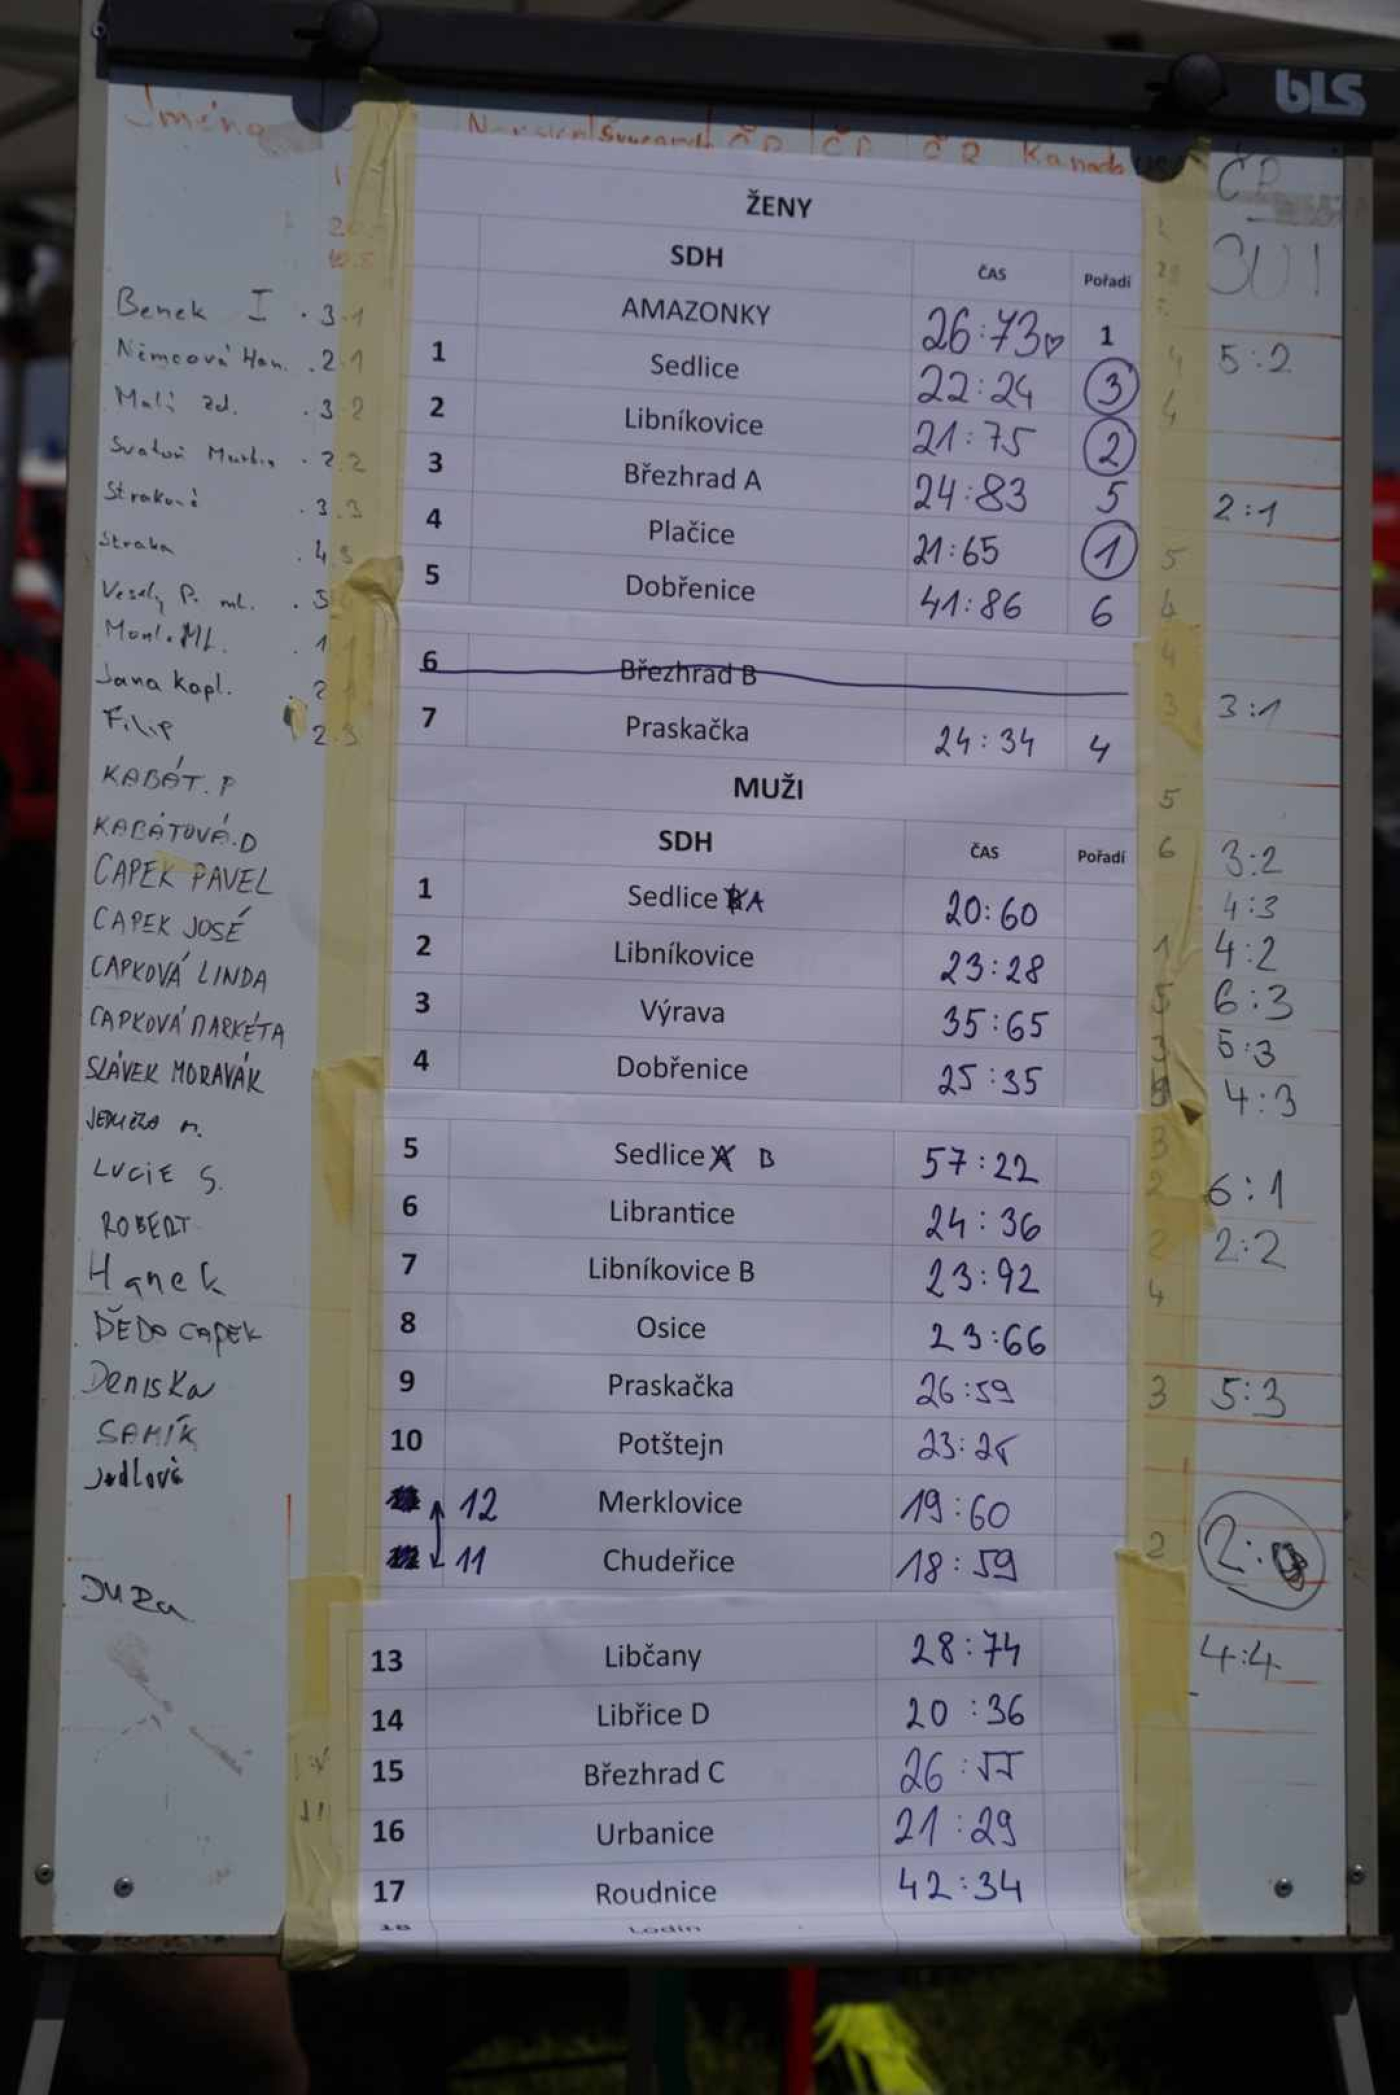 bLS
Jména
ČR ČR ČR Kanada
ČR
ŽENY
SDH ČAS Pořadí
AMAZONKY 26:73♡ 1
1 Sedlice 22:24 3
2 Libníkovice 21:75 2
3 Březhrad A 24:83 5
4 Plačice 21:65 1
5 Dobřenice 41:86 6
6 Březhrad B
7 Praskačka 24:34 4
MUŽI
SDH ČAS Pořadí
1 Sedlice A 20:60
2 Libníkovice 23:28
3 Výrava 35:65
4 Dobřenice 25:35
5 Sedlice A B 57:22
6 Librantice 24:36
7 Libníkovice B 23:92
8 Osice 23:66
9 Praskačka 26:59
10 Potštejn 23:25
12 Merklovice 19:60
11 Chudeřice 18:59
13 Libčany 28:74
14 Libřice D 20:36
15 Březhrad C 26:55
16 Urbanice 21:29
17 Roudnice 42:34
18 Lodín
Benek I 3:1
Němcová Han. 2:1
Malý zd. 3:2
Svatoň Martin 2:2
Straková 3:3
Straka
Veselý P. ml.
Jana Kapl.
Filip 2:3
KABÁT. P
KABÁTOVÁ.D
CAPEK PAVEL
CAPEK JOSÉ
CAPKOVÁ LINDA
CAPKOVÁ MARKÉTA
SLÁVEK MORAVÁK
LUCIE S.
ROBERT
Hanek
DĚDO CAPEK
Deniska
SAMÍK
Jedlová
5:2
2:1
3:1
3:2
4:3
4:2
6:3
5:3
4:3
6:1
2:2
5:3
4:4